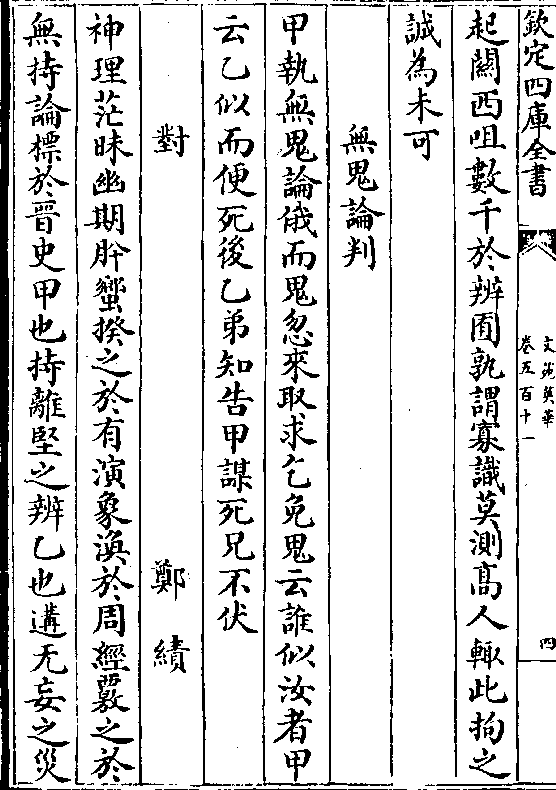 欽定四庫全書
文苑英華
卷五百十一
四
起關西咀數千於辨囿孰謂寡識莫測髙人輙此拘之
誠為未可
無鬼論判
甲執無鬼論俄而鬼忽來取求乞免鬼云誰似汝者甲
云乙似而便死後乙弟知告甲謀死兄不伏
對
鄭績
神理茫昧幽期肸蠁揆之於有演象渙於周經覈之於
無持論標於晉史甲也持離堅之辨乙也遘无妄之災